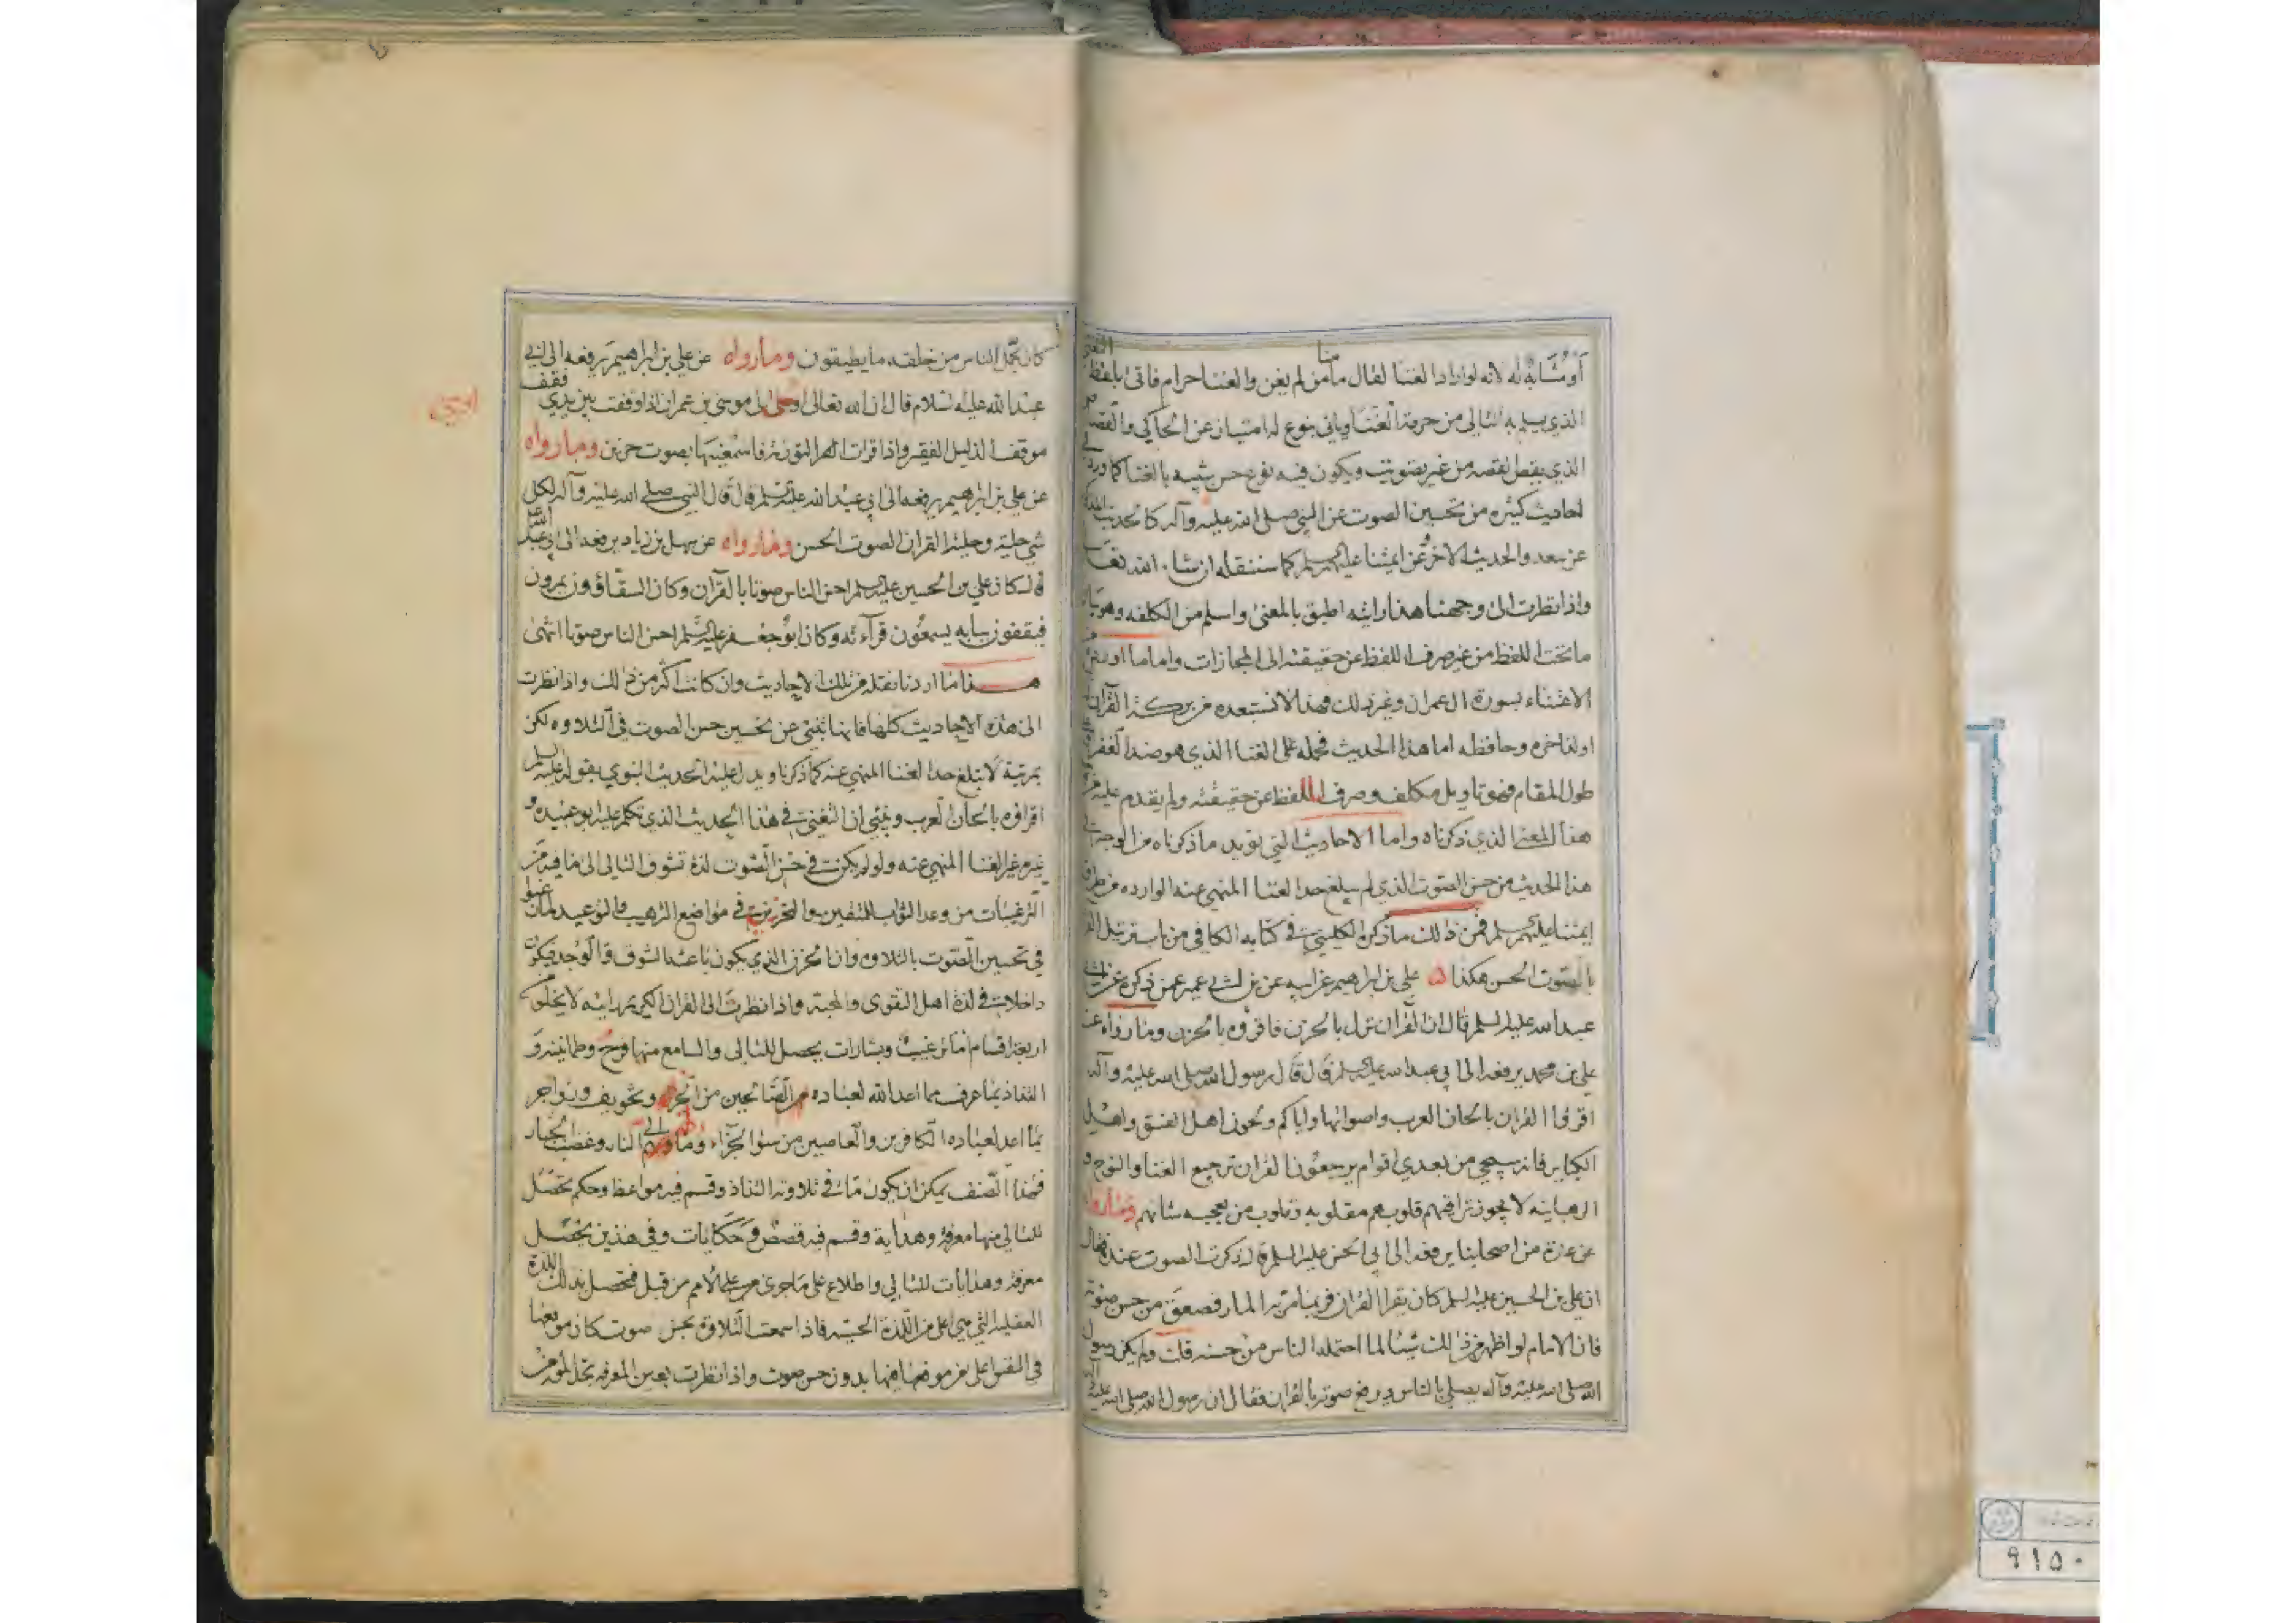 أو مشابه له لانه لو اراد الغنا لقال ما منا من لم يغن والغنا حرام فاتى بلفظ التغنى
الذي يسلم به التالى من حرمة الغنا وياتى بنوع له امتياز عن الحاكي والقصه
الذي يقص لقصه من غير تصويت ويكون فيه نوع حسن شبيه بالغنا كما ورد فى
احاديث كثيره من تحسين الصوت عن النبي صلى الله عليه وآله كالحديث
عن سعد والحديث الاخر وعن ايمتنا عليهم السلم كما سننقله ان شاء الله تعالى
واذا نظرت الى وجهنا هذا رايته اطبق بالمعنى واسلم من الكلفه وهو
ما تحت اللفظ من غير صرف اللفظ عن حقيقته الى المجازات واما ما اورد من
الاغتناء بسورة ال عمران وغير ذلك فهذا لا نستبعده من بركة القرآن
او لذاخره وحافظه اما هذا الحديث فحمله على الغنا الذي هو ضد الفقر
طول المقام فهو تاويل مكلف وصرف اللفظ عن حقيقته ولم يقدم عليه
هذا المعنى الذي ذكرناه واما الاحاديث التي تويد ما ذكرناه من الوجه فى
هذا الحديث من حسن الصوت الذي لم يبلغ حد الغنا المنهى عنه الوارده من طرق
ايمتنا عليهم السلم فمن ذلك ما ذكره الكليني في كتابه الكافي من باب ترتيل القران
بالصوت الحسن هكذا علي بن ابراهيم عن ابيه عن بن ابي عمير عمن ذكره عن ابى
عبد الله عليه السلم قال ان القرآن نزل بالحزن فاقرؤه بالحزن وما رواه عن
علي بن محمد يرفعه الى ابي عبد الله عليه السلم قال قال رسول الله صلى الله عليه وآله
اقرؤا القران بالحان العرب واصواتها واياكم ولحون اهل الفسق واهل
الكباير فانه سيجي من بعدي اقوام يرجعون القران ترجيع الغنا والنوح و
الرهبانيه لا يجوز تراقيهم قلوبهم مقلوبه وقلوب من يعجبه شانهم وما رواه
عن عدة من اصحابنا يرفعه الى ابي الحسن عليه السلم قال ذكرت الصوت عنده فقال
ان علي بن الحسين عليه السلم كان يقرا القران فربما مر به المار فصعق من حسن صوته
فان الامام لو اظهر من ذلك شيئا لما احتمله الناس من حسنه قلت ولم يكن رسول
الله صلى الله عليه وآله يصلي بالناس ويرفع صوته بالقران فقال ان رسول الله صلى الله عليه وآله
كان يحمل الناس من خلقه ما يطيقون وما رواه عن علي بن ابراهيم يرفعه الى ابي
عبد الله عليه السلام قال ان الله تعالى اوحى الى موسى بن عمران اذا وقفت بين يدي فقف
موقف الذليل الفقير واذا قرات التورية فاسمعنيها بصوت حزين وما رواه
عن علي بن ابرهيم يرفعه الى ابي عبد الله عليه السلم قال قال النبي صلى الله عليه وآله لكل
شي حلية وحلية القران الصوت الحسن وما رواه عن سهل بن زياد يرفعه الى ابي عبد الله
قال كان علي بن الحسين عليه السلم احسن الناس صوتا بالقرآن وكان السقاؤن يمرون
فيقفون ببابه يسمعون قرآءته وكان ابو جعفر عليه السلم احسن الناس صوتا انتهى
هذا ما اردنا نقله من تلك الاحاديث وان كانت اكثر من ذلك واذا نظرت
الى هذه الاحاديث كلها فانها تنبئ عن تحسين حسن الصوت في التلاوه لكن
بمرتبة لا تبلغ حد الغنا المنهي عنه كما ذكرنا ويدل عليه الحديث النبوي بقوله عليه السلم
اقراؤه بالحان العرب وينبئ ان التغنى في هذا الحديث الذي تكلم عليه ابو عبيده و
غيره غير الغنا المنهي عنه ولو لم يكن في حسن الصوت لذة تشوق التالى الى ما فيه من
الترغيبات من وعد الثواب للمتقين والتحزين في مواضع الترهيب والوعيد لما
في تحسين الصوت بالتلاوه وان الحزن الذي يكون باعثه الشوق والوجد فيكون
داخلا في لذة اهل التقوى والمحبة واذا نظرت الى القران الكريم رايته لا يخلو من
اربعة اقسام اما ترغيب وبشارات يحصل للتالى والسامع منها فرح وطمانينه و
التذاذ بما عرف مما اعد الله لعباده الصالحين من الجزاء وتخويف وزواجر
بما اعد لعباده الكافرين والعاصين من سوء الجزاء النار وغضب الجبار
فهذا الصنف يمكن ان يكون ما في تلاوته التذاذ وقسم فيه مواعظ وحكم تحصل
للتالي منها معرفة وهداية وقسم فيه قصص وحكايات وفي هذين يحصل
معرفة وهدايات للتالي واطلاع على ما جرى على الامم من قبل فتحصل بذلك اللذة
العقلية التي هي اعلى من اللذة الحسيه فاذا سمعت التلاوة بحسن صوت كان موقعها
في النفس اعلى من موقعها فيها بدون حسن صوت واذا نظرت بعين المعرفه تجد المؤمن
اوحى
٩١٥٠